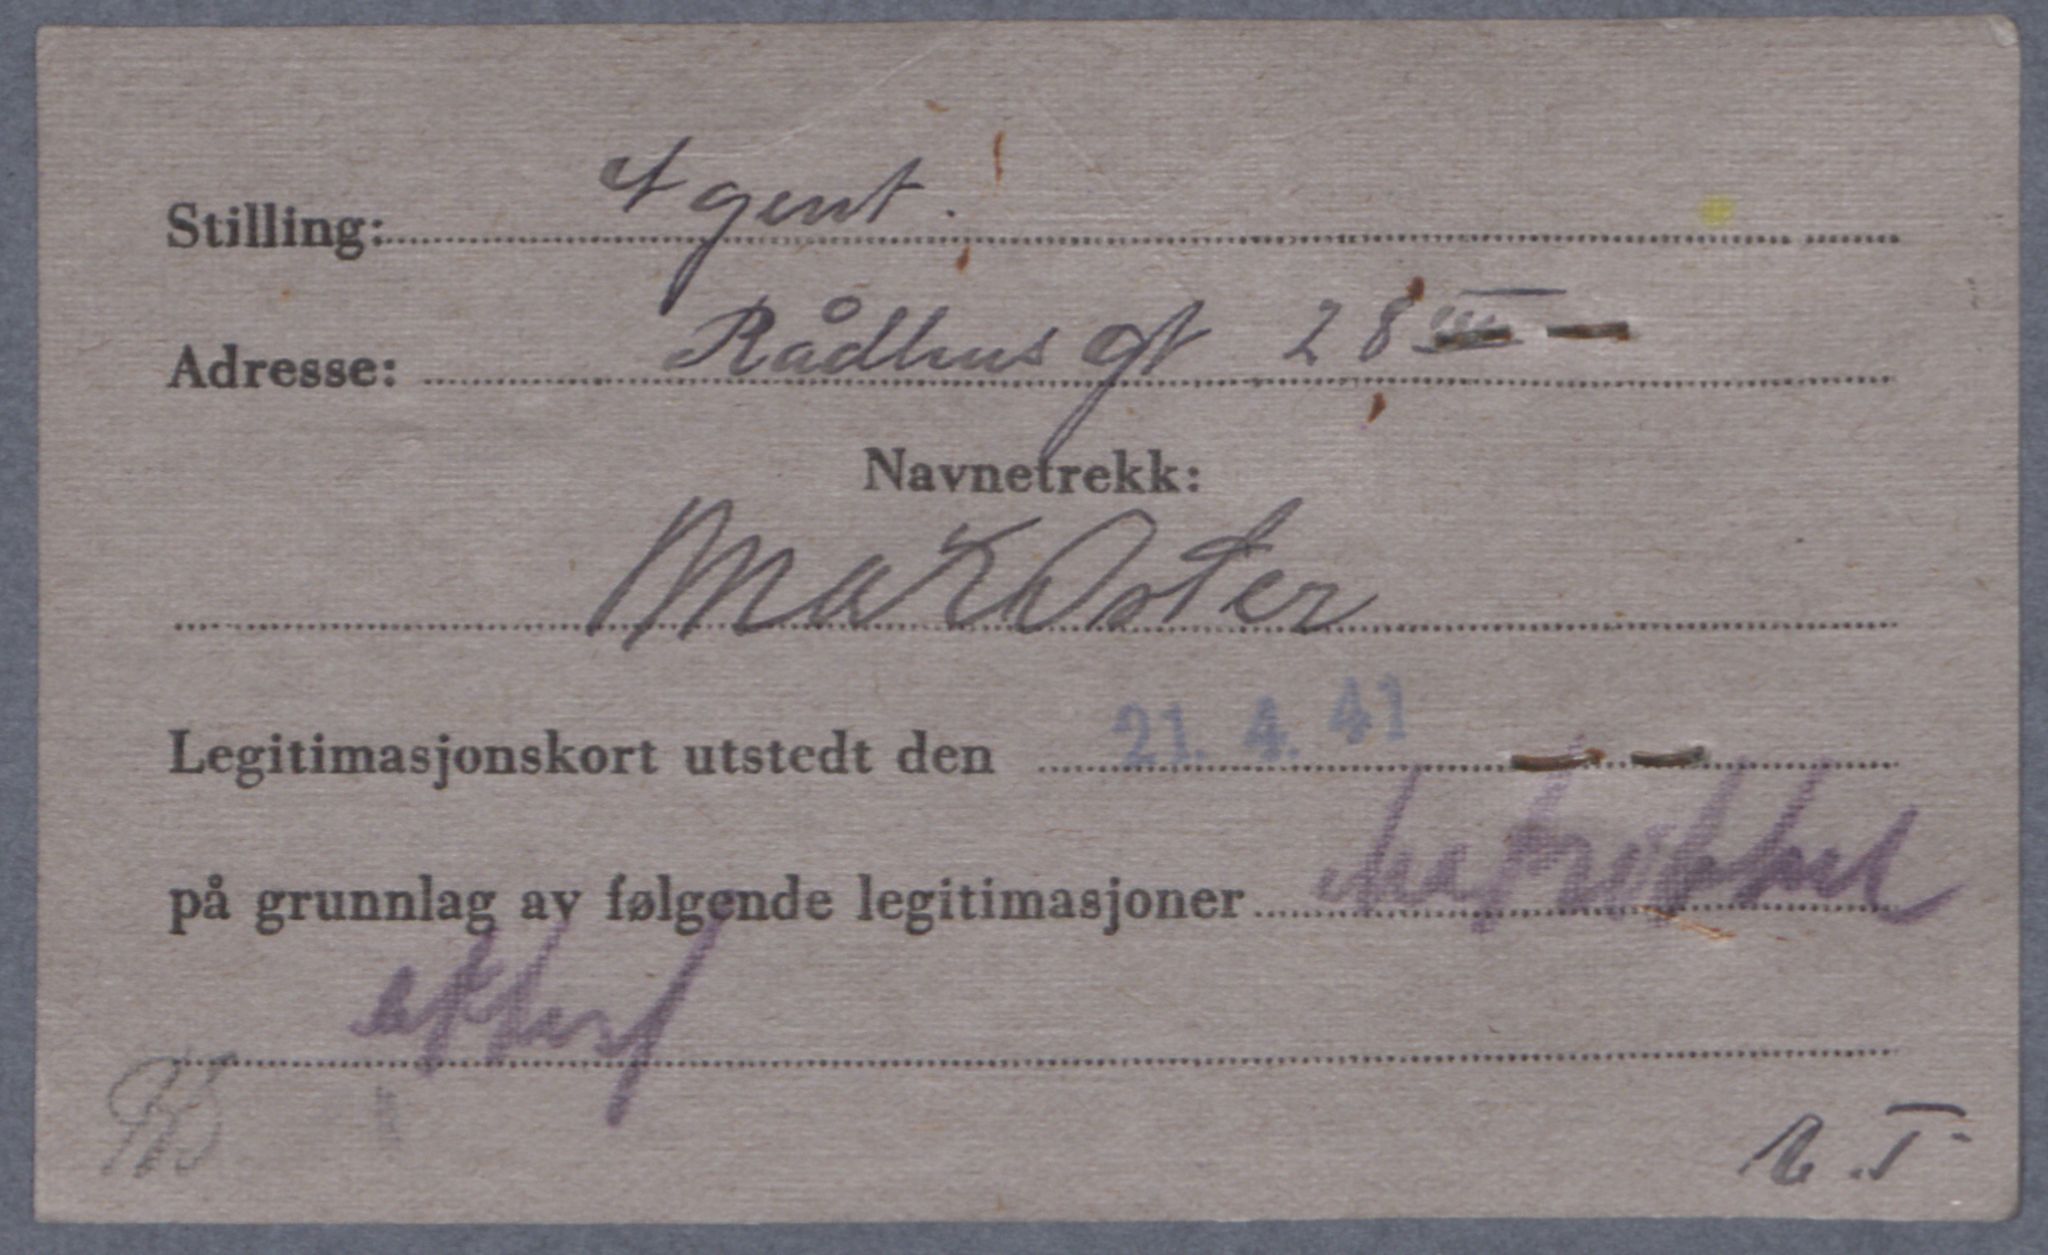 Stilling: Agent.
Adresse: Rådhus gt 28 III
Navnetrekk:
Max Oster
Legitimasjonskort utstedt den 21. 4. 41
på grunnlag av følgende legitimasjoner